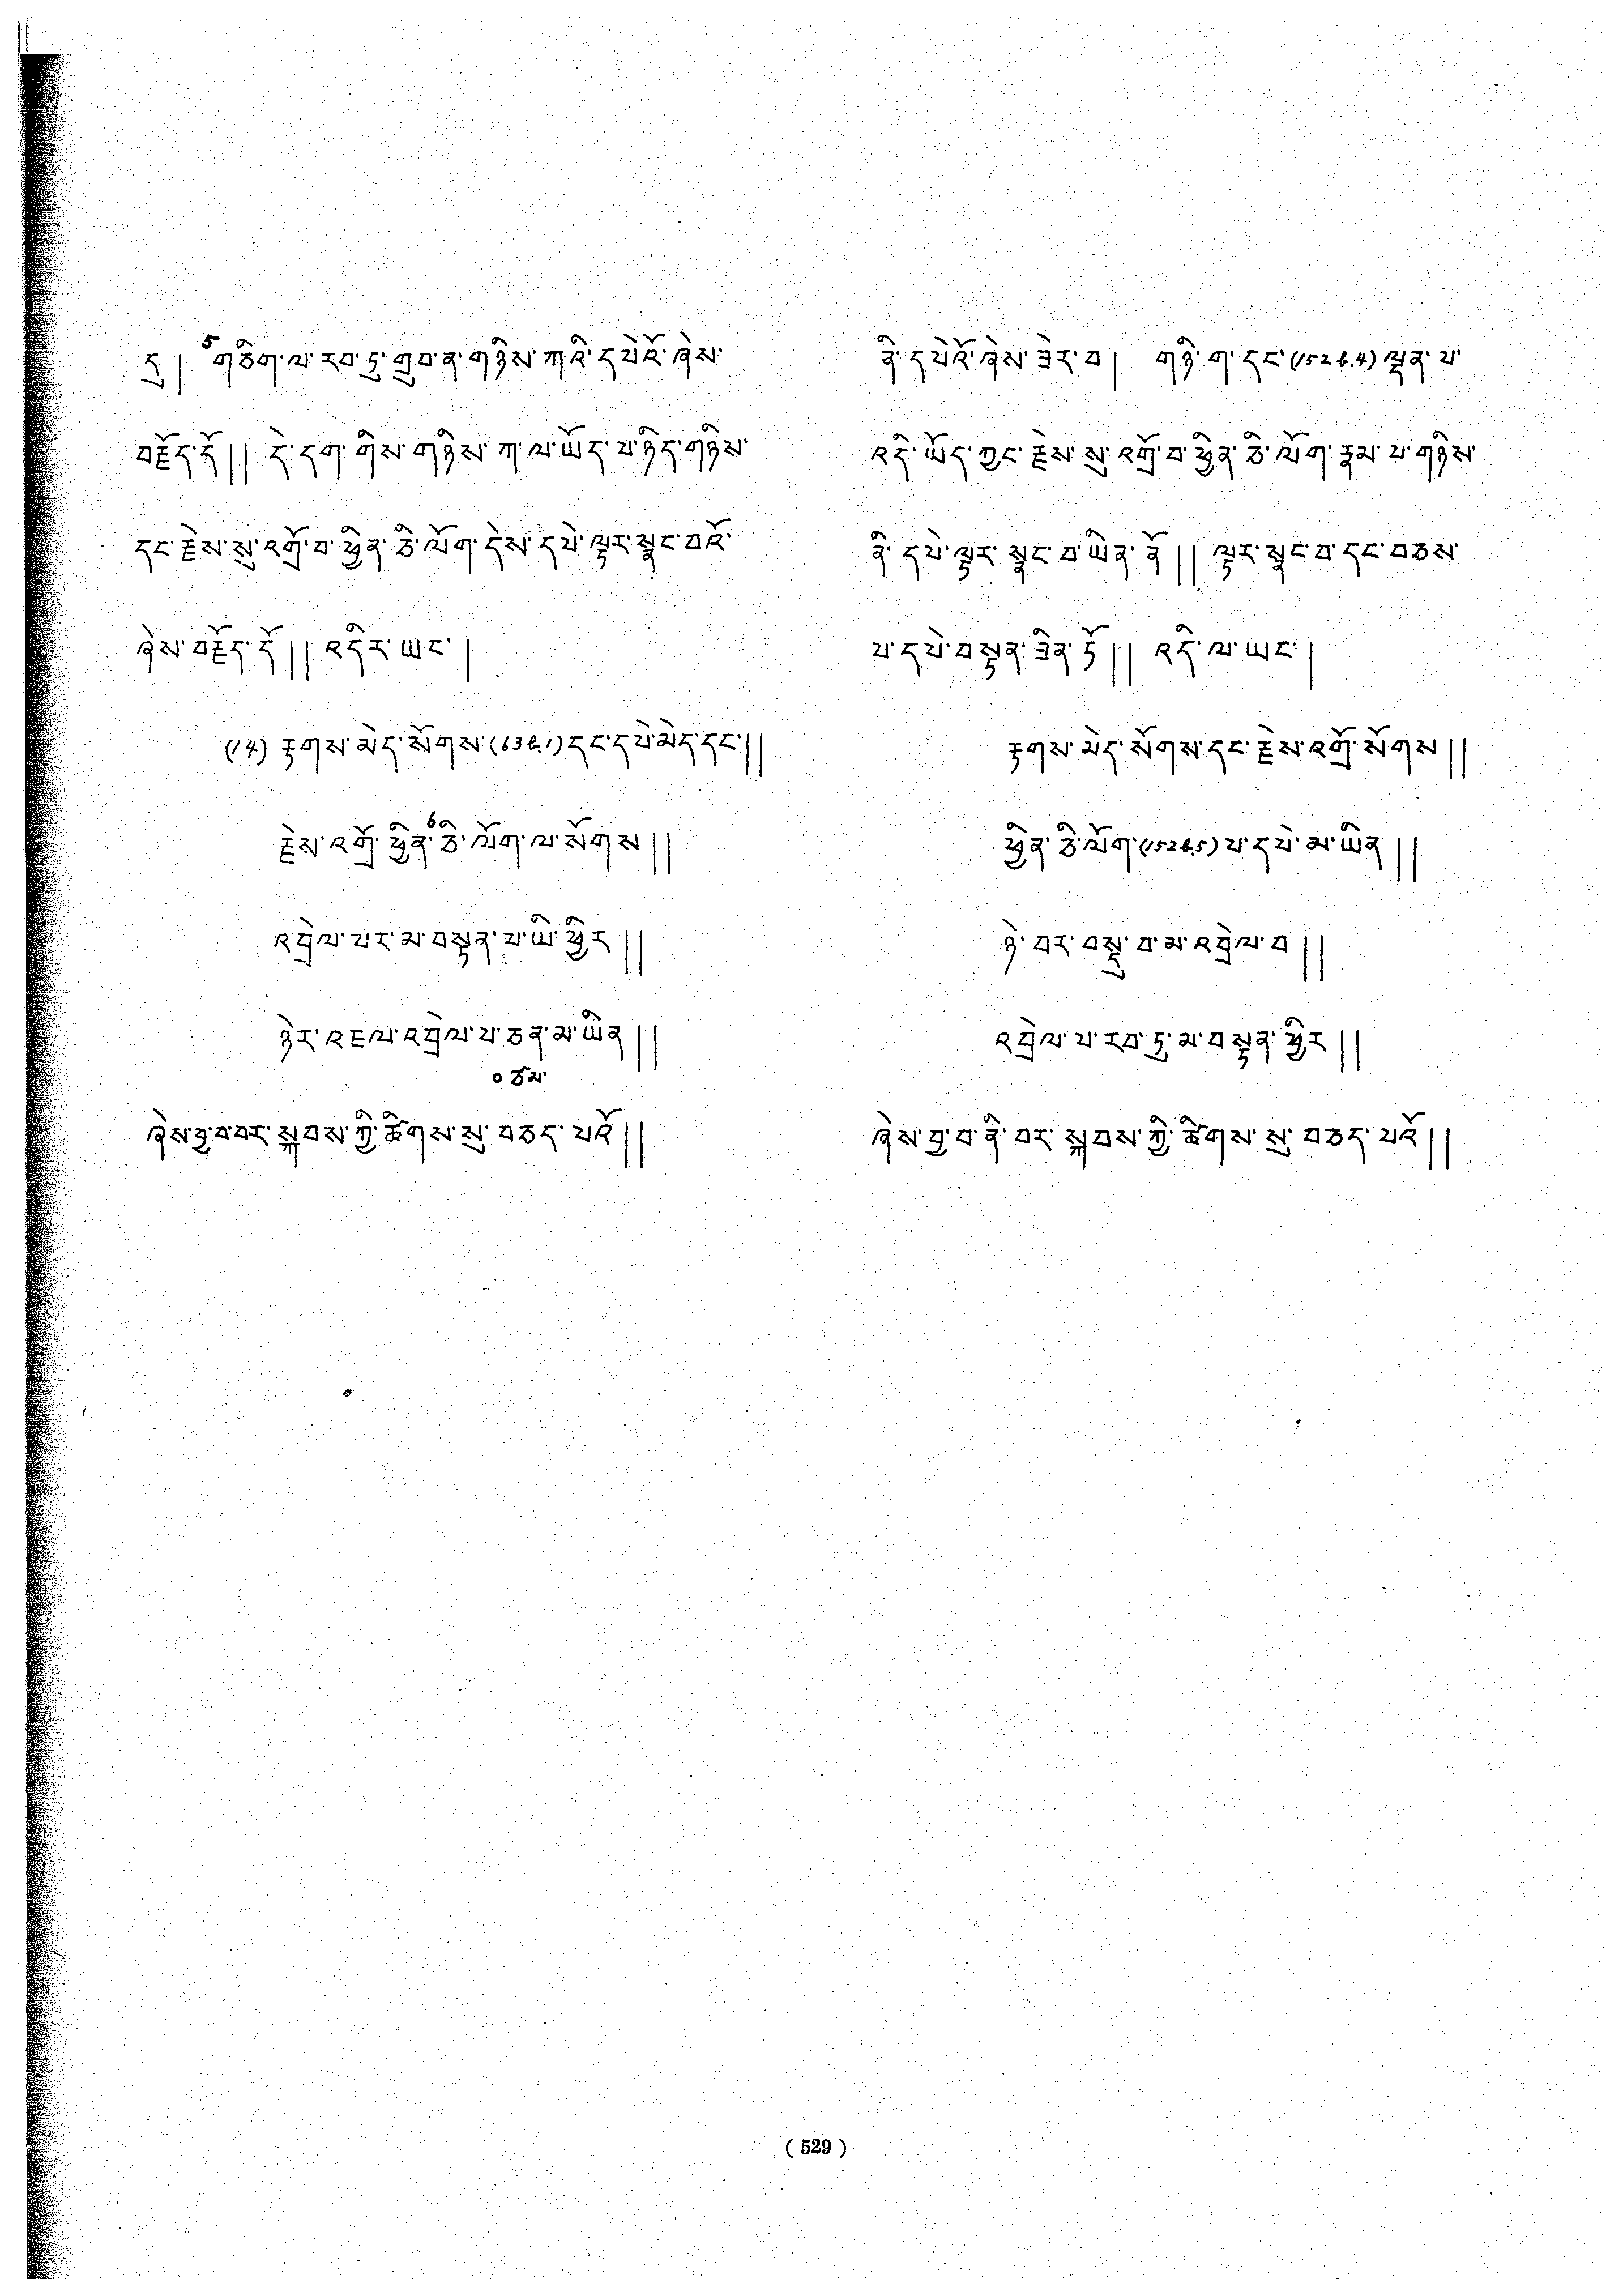 དུ། ⁵གཅིག་ལ་རབ་ཏུ་གྲུབ་ན་གཉིས་ཀའི་དཔེའོ་ཞེས་
བརྗོད་དོ།། དེ་དག་གིས་གཉིས་ཀ་ལ་ཡོད་པ་ཉིད་གཉིས་
དང་རྗེས་སུ་འགྲོ་བ་ཕྱིན་ཅི་ལོག་དེས་དཔེ་ལྟར་སྣང་བའོ་
ཞེས་བརྗོད་དོ།། འདིར་ཡང་།
(14) རྟགས་མེད་སོགས་(63b.1)དང་དཔེ་མེད་དང་།།
རྗེས་འགྲོ་ཕྱིན་⁶ཅི་ལོག་ལ་སོགས།།
འབྲེལ་པར་མ་བསྟན་པ་ཡི་ཕྱིར།།
ཉེར་འཇལ་འབྲེལ་པ་ཅན་མ་ཡིན།།
༠ཙམ་
ཞེས་བྱ་བ་བར་སྐབས་ཀྱི་ཚིགས་སུ་བཅད་པའོ།།
ནི་དཔེའོ་ཞེས་ཟེར་བ། གཉི་ག་དང་(152b.4)ལྡན་པ་
འདི་ཡོད་ཀྱང་རྗེས་སུ་འགྲོ་བ་ཕྱིན་ཅི་ལོག་རྣམ་པ་གཉིས་
ནི་དཔེ་ལྟར་སྣང་བ་ཡིན་ནོ།། ལྟར་སྣང་བ་དང་བཅས་
པ་དཔེ་བསྟན་ཟིན་ཏོ།། འདི་ལ་ཡང་།
རྟགས་མེད་སོགས་དང་རྗེས་འགྲོ་སོགས།།
ཕྱིན་ཅི་ལོག་(152b.5)པ་དཔེ་མ་ཡིན།།
ཉེ་བར་བསྡུ་བ་མ་འབྲེལ་བ།།
འབྲེལ་པ་རབ་ཏུ་མ་བསྟན་ཕྱིར།།
ཞེས་བྱ་བ་ནི་བར་སྐབས་ཀྱི་ཚིགས་སུ་བཅད་པའོ།།
( 529 )